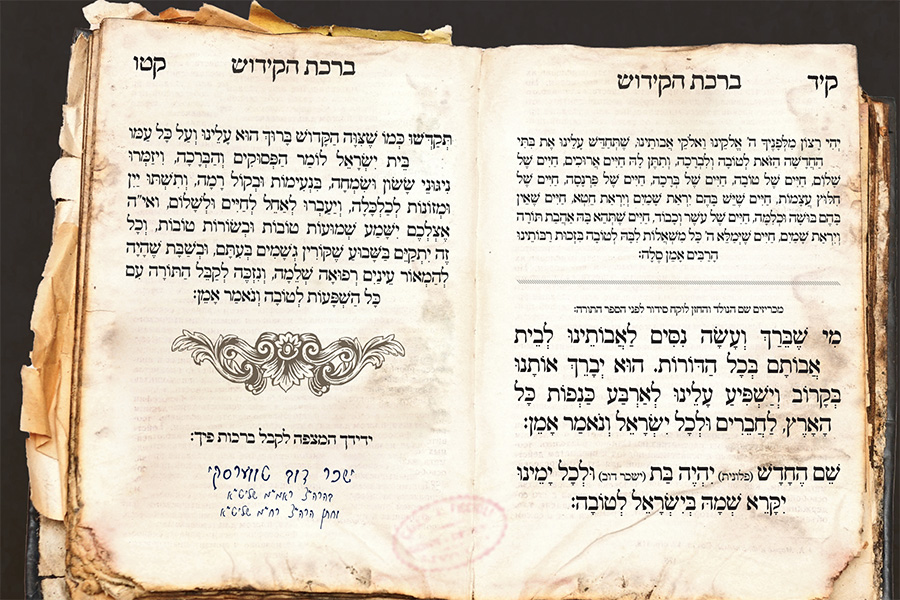 קיד ברכת הקידוש
יְהִי רָצוֹן מִלְּפָנֶיךָ ה' אֱלֹקֵינוּ וֵאלֹקֵי אֲבוֹתֵינוּ, שֶׁתְּחַדֵּשׁ עָלֵינוּ אֶת בִּתִּי
הַחֲדָשָׁה הַזֹּאת לְטוֹבָה וְלִבְרָכָה, וְתִתֶּן לָהּ חַיִּים אֲרוּכִים, חַיִּים שֶׁל
שָׁלוֹם, חַיִּים שֶׁל טוֹבָה, חַיִּים שֶׁל בְּרָכָה, חַיִּים שֶׁל פַּרְנָסָה, חַיִּים שֶׁל
חִלּוּץ עֲצָמוֹת, חַיִּים שֶׁיֵּשׁ בָּהֶם יִרְאַת שָׁמַיִם וְיִרְאַת חֵטְא, חַיִּים שֶׁאֵין
בָּהֶם בּוּשָׁה וּכְלִמָּה, חַיִּים שֶׁל עֹשֶׁר וְכָבוֹד, חַיִּים שֶׁתְּהֵא בָּהּ אַהֲבַת תּוֹרָה
וְיִרְאַת שָׁמַיִם, חַיִּים שֶׁיְּמַלֵּא ה' כָּל מִשְׁאֲלוֹת לִבָּהּ לְטוֹבָה בִּזְכוּת רַבּוֹתֵינוּ
הָרַבִּים אָמֵן סֶלָה:
מכריזים שם הנולד והחזן לוקח סידור לפני הספר התורה:
מִי שֶׁבֵּרַךְ וְעָשָׂה נִסִּים לַאֲבוֹתֵינוּ לְבֵית
אֲבוֹתָם בְּכָל הַדּוֹרוֹת. הוּא יְבָרֵךְ אוֹתָנוּ
בְּקָרוֹב וְיַשְׁפִּיעַ עָלֵינוּ לְאַרְבַּע כַּנְפוֹת כָּל
הָאָרֶץ, לַחֲבֵרִים וּלְכָל יִשְׂרָאֵל וְנֹאמַר אָמֵן:
שֵׁם הֶחָדָשׁ (פלונית) יִהְיֶה בַּת (יששכר דוב) וּלְכָל יָמֵינוּ
יִקָּרֵא שְׁמָהּ בְּיִשְׂרָאֵל לְטוֹבָה:
ברכת הקידוש קטו
תְּקַדְּשׁוּ כְּמוֹ שֶׁצִּוָּה הַקָּדוֹשׁ בָּרוּךְ הוּא עָלֵינוּ וְעַל כָּל עַמּוֹ
בֵּית יִשְׂרָאֵל לוֹמַר הַפְּסוּקִים וְהַבְּרָכָה, וִיזַמְּרוּ
נִיגּוּנֵי שָׂשׂוֹן וְשִׂמְחָה, בִּנְעִימוּת וּבְקוֹל רָמָה, וְתִשְׁתּוּ יַיִן
וּמְזוֹנוֹת לְכַלְכָּלָה, וְיַעַבְרוּ לְאַחֵל לְחַיִּים וּלְשָׁלוֹם, וא"ה
אֶצְלְכֶם יִשָּׁמַע שְׁמוּעוֹת טוֹבוֹת וּבְשׂוֹרוֹת טוֹבוֹת, וְכָל
זֶה יִתְקַיֵּם בַּשָּׁבוּעַ שֶׁקּוֹרִין גְּשָׁמִים בְּעִתָּם, וּבְשַׁבָּת שֶׁהָיָה
לְהַמְאוֹר עֵינַיִם רְפוּאָה שְׁלֵמָה, וְנִזְכֶּה לְקַבֵּל הַתּוֹרָה עִם
כָּל הַשְׁפָּעוֹת לְטוֹבָה וְנֹאמַר אָמֵן:
ידידך המצפה לקבל ברכות פיך:
ישכר דוב טווערסקי
בהרה"צ ראמ"מ שליט"א
וחתן הרה"צ רח"מ שליט"א